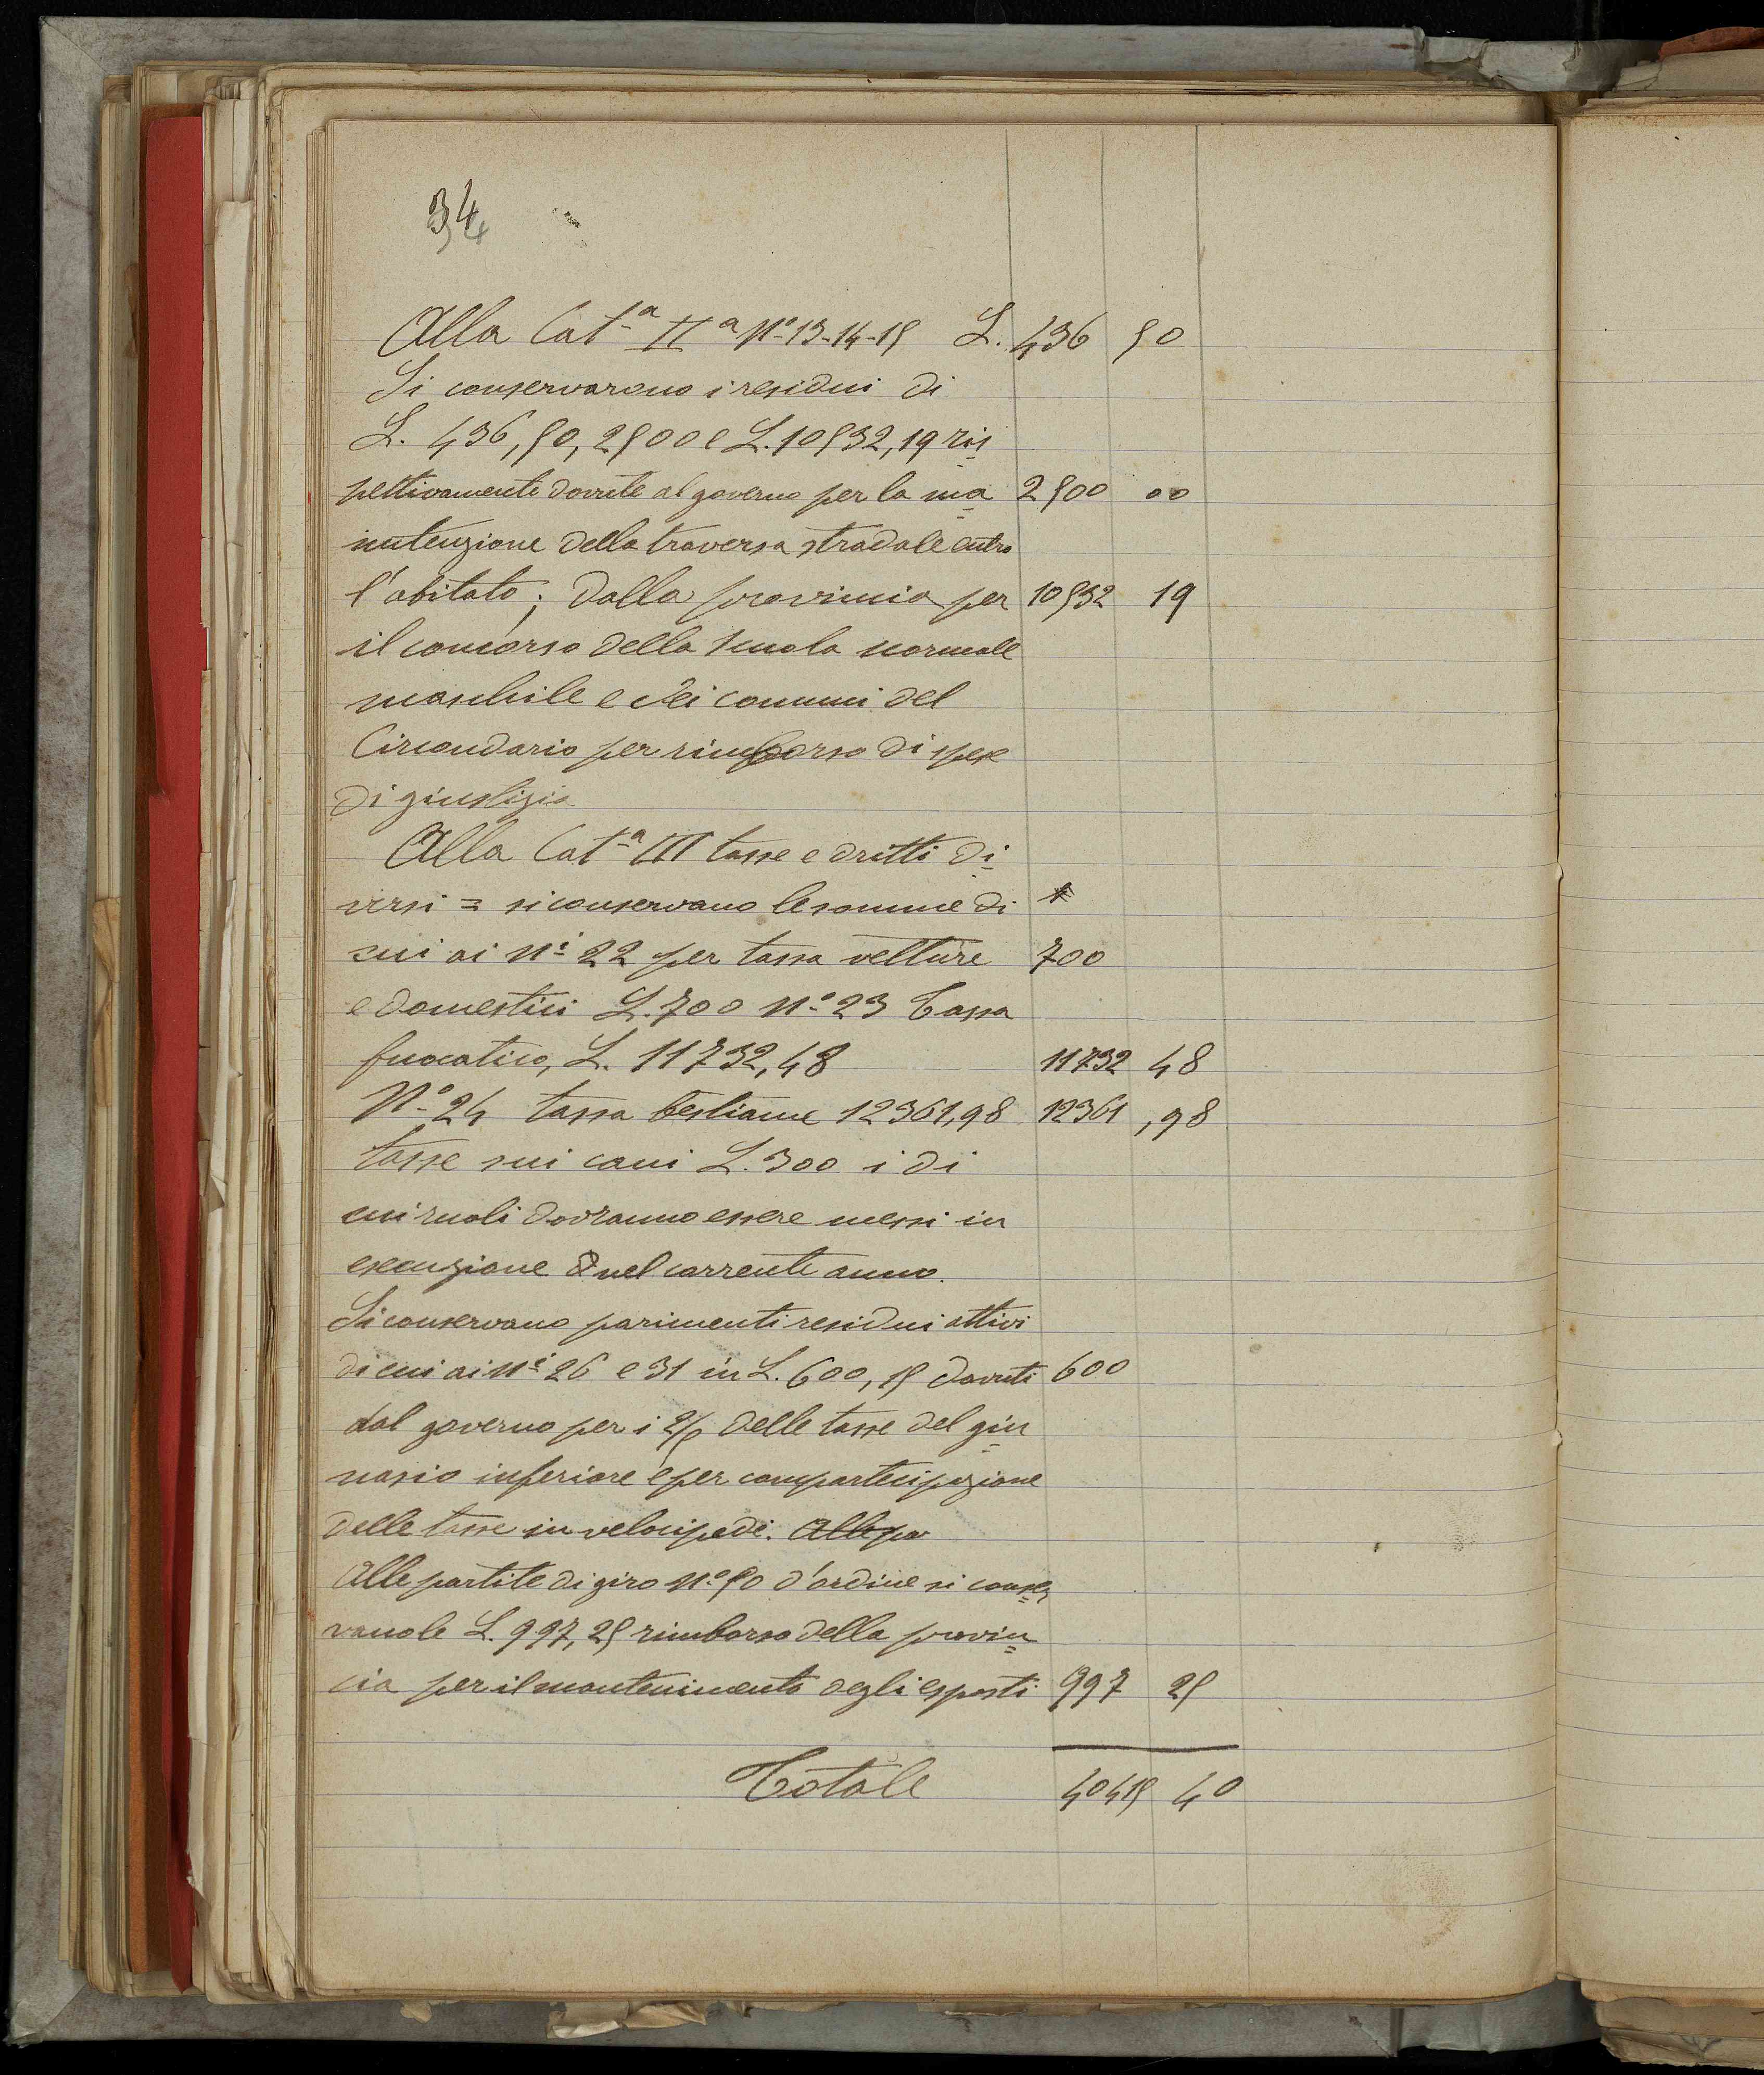 34
Alla Cat.ª IIª Nº 13-14-15 L. 436 50
Si conservarono i residui di
L. 436,50, 2500 e L. 10532,19 ris
pettivamente dovute al governo per la ma 2500 00
nutenzione della traversa stradale entro
l'abitato; dalla provincia per 10532 19
il concorso della scuola normale
maschile e dei comuni del
Circondario per rimborso di spese
di giustizia
Alla Cat.ª III tasse e dritti di
versi = si conservano le somme di
cui ai Nⁱ 22 per tassa vetture 700
e domestici L. 700 Nº 23 Tassa
fuocatico, L. 11732,48 11732 48
Nº 24 tassa bestiame 12361,98 12361 ,98
tasse sui cani L. 300 i di
cui ruoli dovranno essere messi in
esecuzione nel corrente anno.
Si conservano parimenti residui attivi
di cui ai Nⁱ 26 e 31 in L. 600, 15 dovuti 600
dal governo per i 2/5 delle tasse del gin
nasio inferiore e per compartecipazione
delle tasse in velocipedi. Alle par
Alle partite di giro Nº 50 d'ordine si conser
vano le L. 997,25 rimborso della provin
cia per il mantenimento degli esposti 997 25
Totale 40415 40